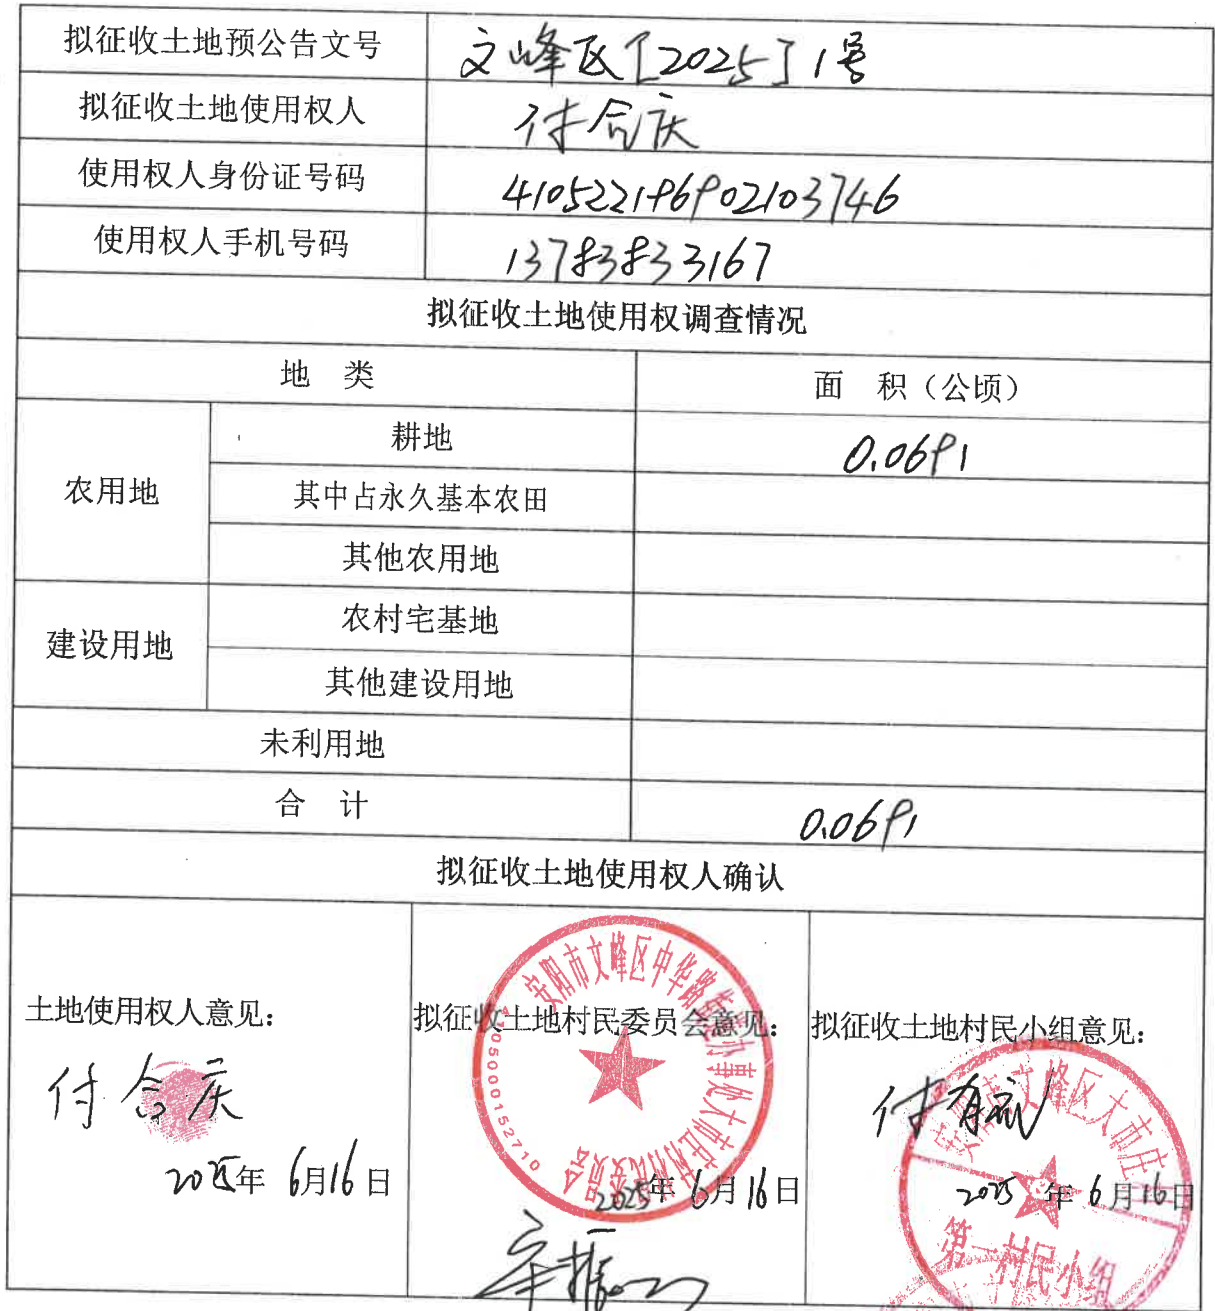 拟征收土地预公告文号 文峰区[2025]1号
拟征收土地使用权人 付合庆
使用权人身份证号码 410522196902103746
使用权人手机号码 13783833167
拟征收土地使用权调查情况
地 类 面 积（公顷）
农用地
耕地 0.0691
其中占永久基本农田
其他农用地
建设用地
农村宅基地
其他建设用地
未利用地
合 计 0.0691
拟征收土地使用权人确认
土地使用权人意见：
付合庆
2025年 6月16日
拟征收土地村民委员会意见：
安阳市文峰区中华路街道办事处大市庄村村民委员会
4105000152710
2025年 6月16日
拟征收土地村民小组意见：
付有
安阳市文峰区大市庄
2025年6月16日
第一村民小组